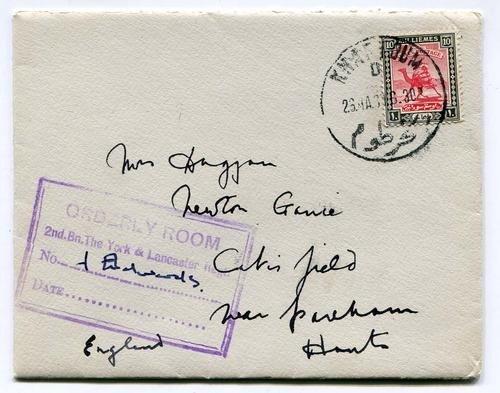 KHARTOUM
26.MA.
8.30
خرطوم
10 MILLIEMES 10
POSTAGE
Mrs Huggan
Newton Game
Catisfield
near Fareham
Hants
England
ORDERLY ROOM
2nd.Bn.The York & Lancaster Regt
No. J Edwards.
DATE